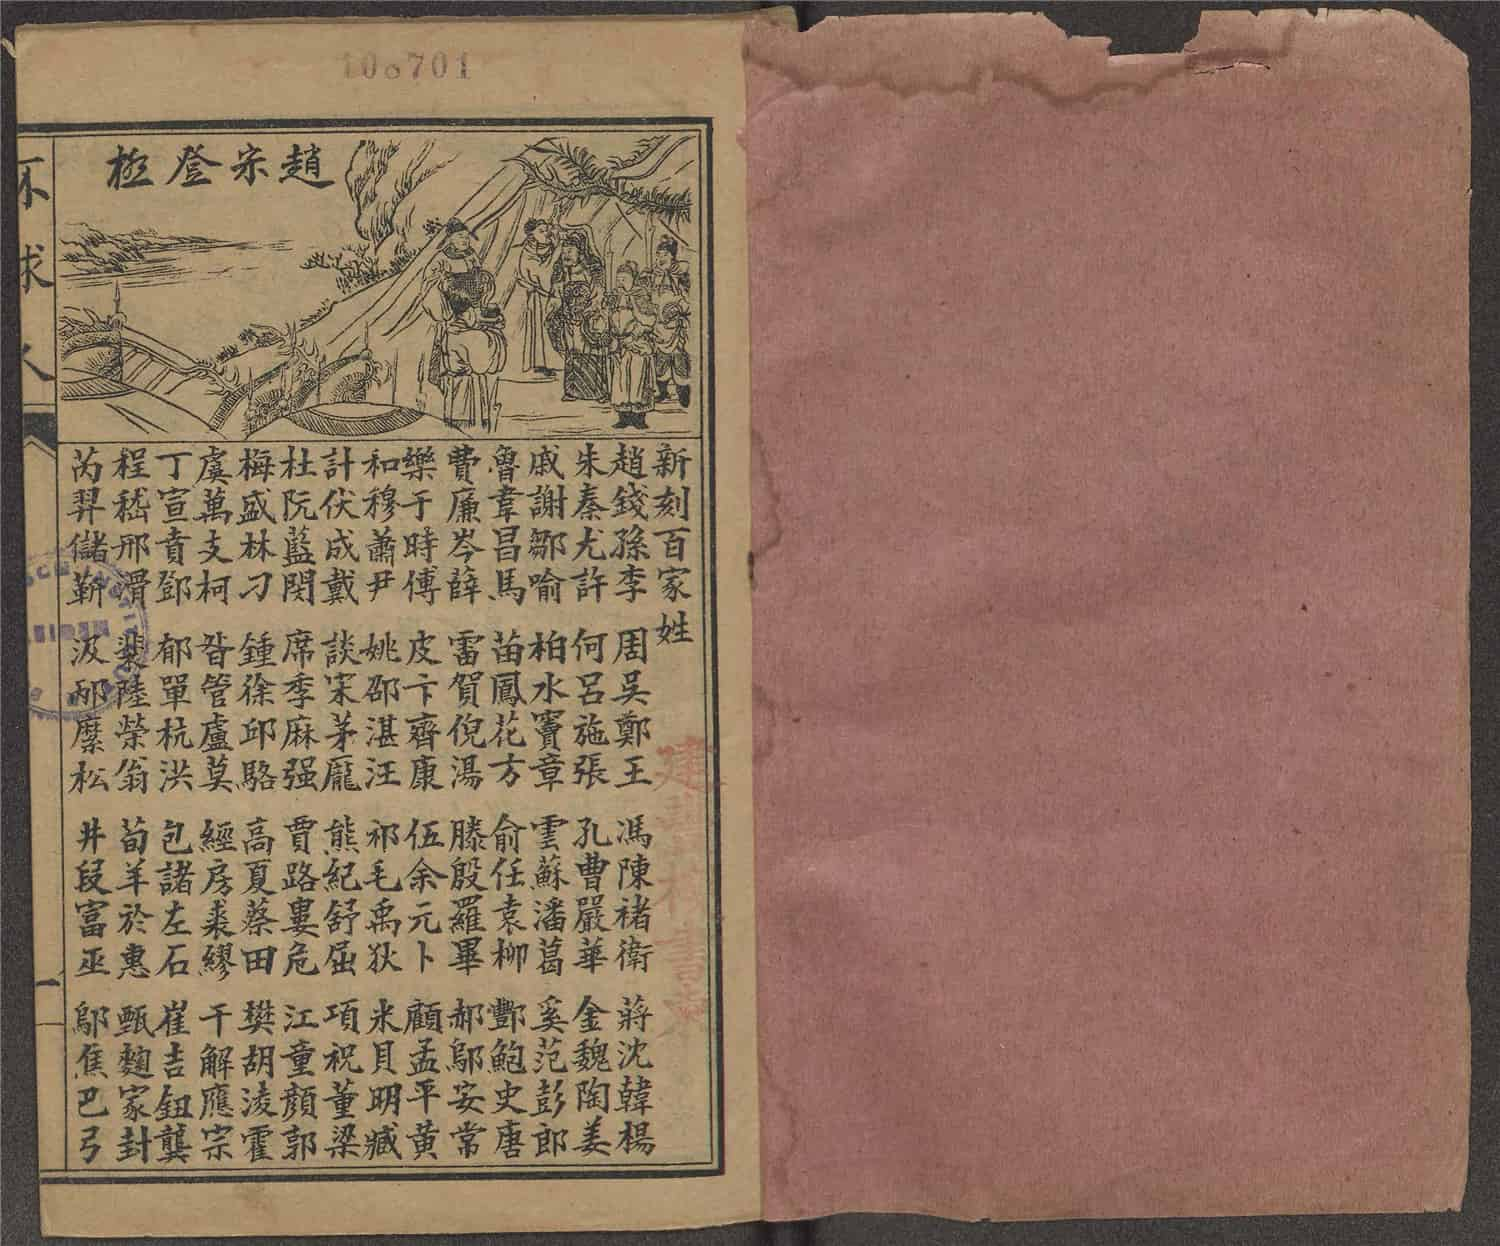 108701
趙宗登極
新刻百家姓
趙錢孫李 周吳鄭王 馮陳褚衛 蔣沈韓楊
朱秦尤許 何呂施張 孔曹嚴華 金魏陶姜
戚謝鄒喻 柏水竇章 雲蘇潘葛 奚范彭郎
魯韋昌馬 苗鳳花方 俞任袁柳 酆鮑史唐
費廉岑薛 雷賀倪湯 滕殷羅畢 郝鄔安常
樂于時傅 皮卞齊康 伍余元卜 顧孟平黃
和穆蕭尹 姚邵湛汪 祁毛禹狄 米貝明臧
計伏成戴 談宋茅龐 熊紀舒屈 項祝董梁
杜阮藍閔 席季麻强 賈路婁危 江童顏郭
梅盛林刁 鍾徐邱駱 高夏蔡田 樊胡淩霍
虞萬支柯 昝管盧莫 經房裘繆 干解應宗
丁宣賁鄧 郁單杭洪 包諸左石 崔吉鈕龔
程嵇邢滑 裴陸榮翁 荀羊於惠 甄麴家封
芮羿儲靳 汲邴糜松 井段富巫 鄔焦巴弓
一